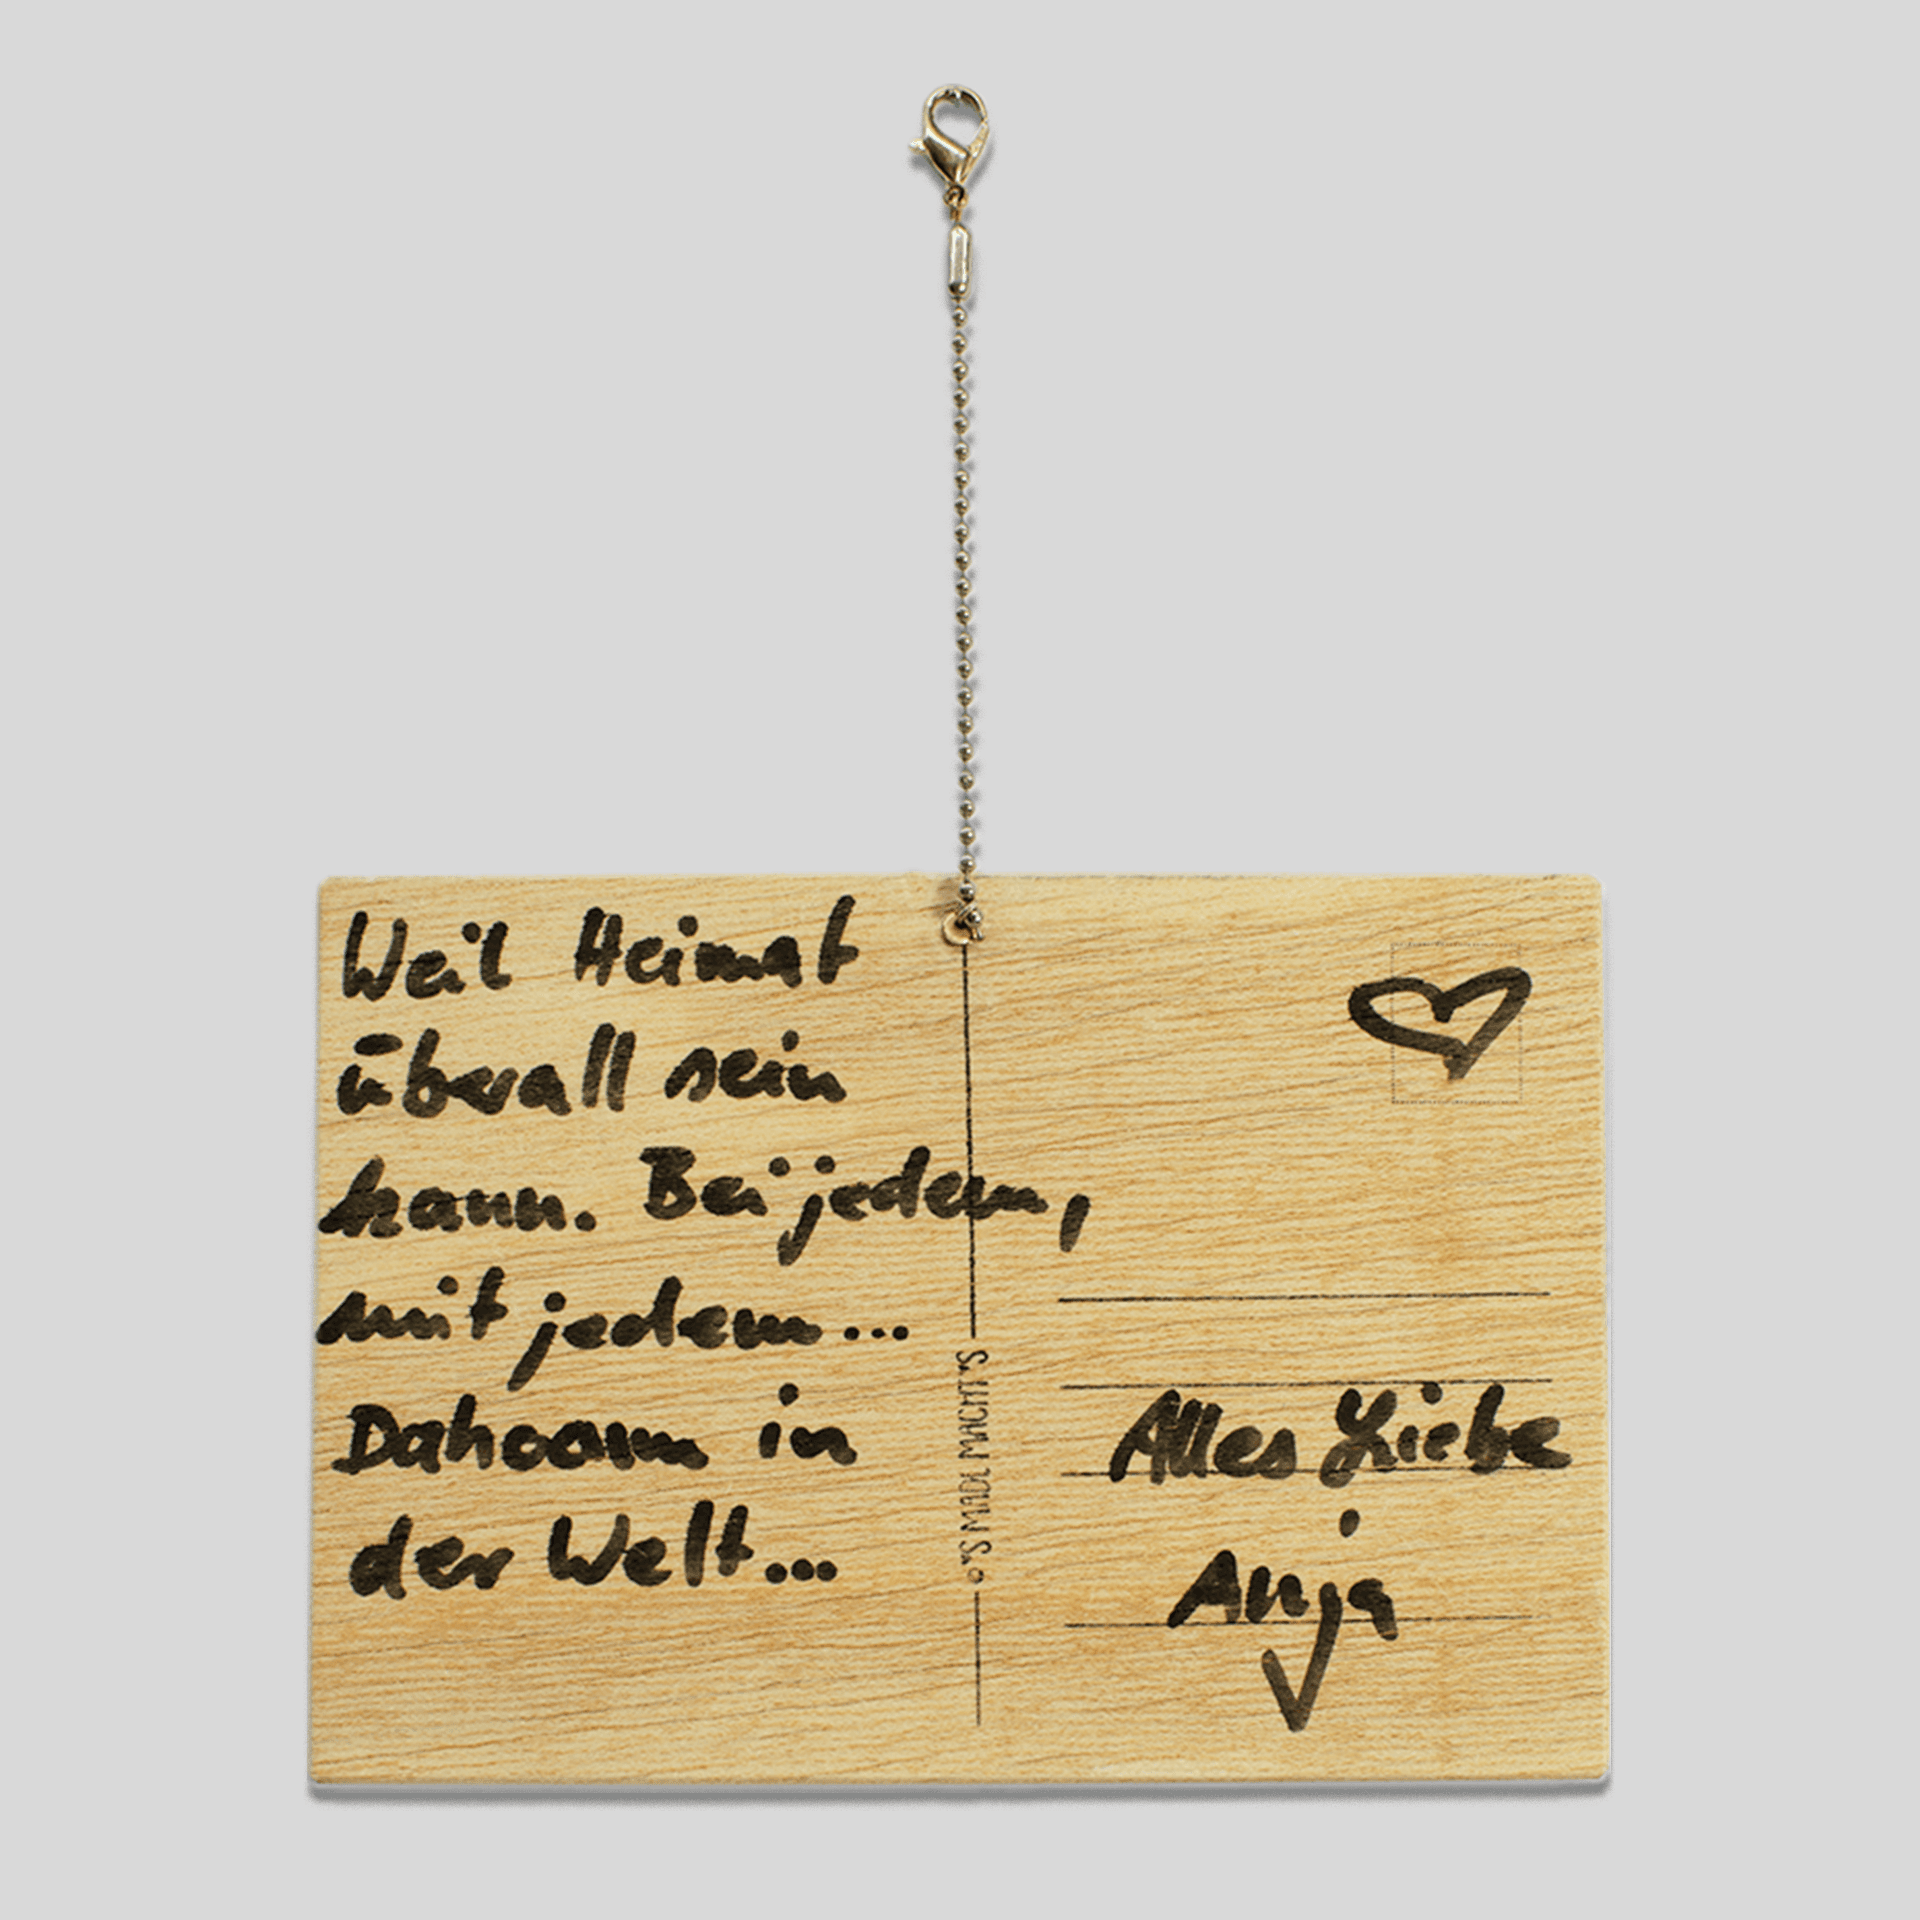 Weil Heimat
überall sein
kann. Bei jedem,
mit jedem...
Dahoam in
der Welt...
°'S MADL MACHT'S
Alles Liebe
Anja